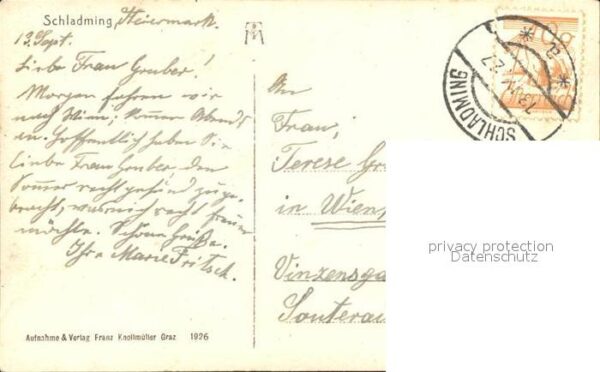 Schladming, Steiermark.
13. Sept.
Liebe Frau Gruber!
Morgen fahren wir
nach Wien; kommen Abends
an. Hoffentlich haben Sie
liebe Frau Gruber, den
Sommer recht gesund zuge-
bracht, was mich recht freuen
möchte. Schöne Grüße.
Ihre Marie Fritsch.
Aufnahme & Verlag Franz Knollmüller Graz 1926
An
Frau,
Terese Gr
in Wien,
Vinzensga
Souterai
SCHLADMING
privacy protection
Datenschutz